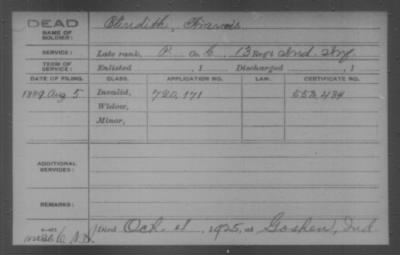 DEAD
NAME OF SOLDIER: Francis
SERVICE: Late rank, P Co. C, 13 Reg't Ind. Inf.
TERM OF SERVICE: Enlisted , 1 Discharged , 1
DATE OF FILING. CLASS. APPLICATION NO. LAW. CERTIFICATE NO.
1889 Aug 5 Invalid, 720,171 553,434
Widow,
Minor,
ADDITIONAL SERVICES:
REMARKS:
Died Oct. , 1925, at Goshen, Ind